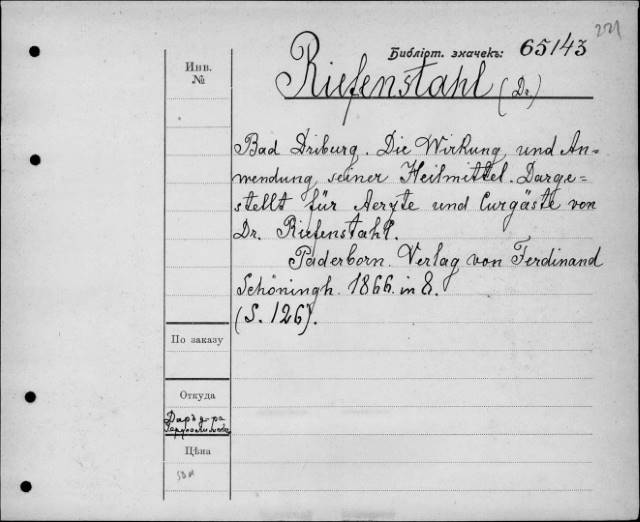 221
Библіот. значекъ: 65143
Инв.
№
Riefenstahl (Dr.)
Bad Driburg. Die Wirkung und An=
wendung seiner Heilmittel. Darge=
stellt für Aerzte und Curgäste von
Dr. Riefenstahl.
Paderborn. Verlag von Ferdinand
Schöningh. 1866. in 8.
(S. 126).
По заказу
Откуда
Даръ д-ра
Цѣна